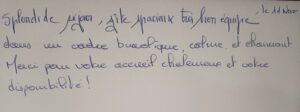 Splendide séjour, gîte spacieux très bien équipé , le 11 Nov
dans un cadre bucolique, calme, et charmant
Merci pour votre accueil chaleureux et votre
disponibilité !